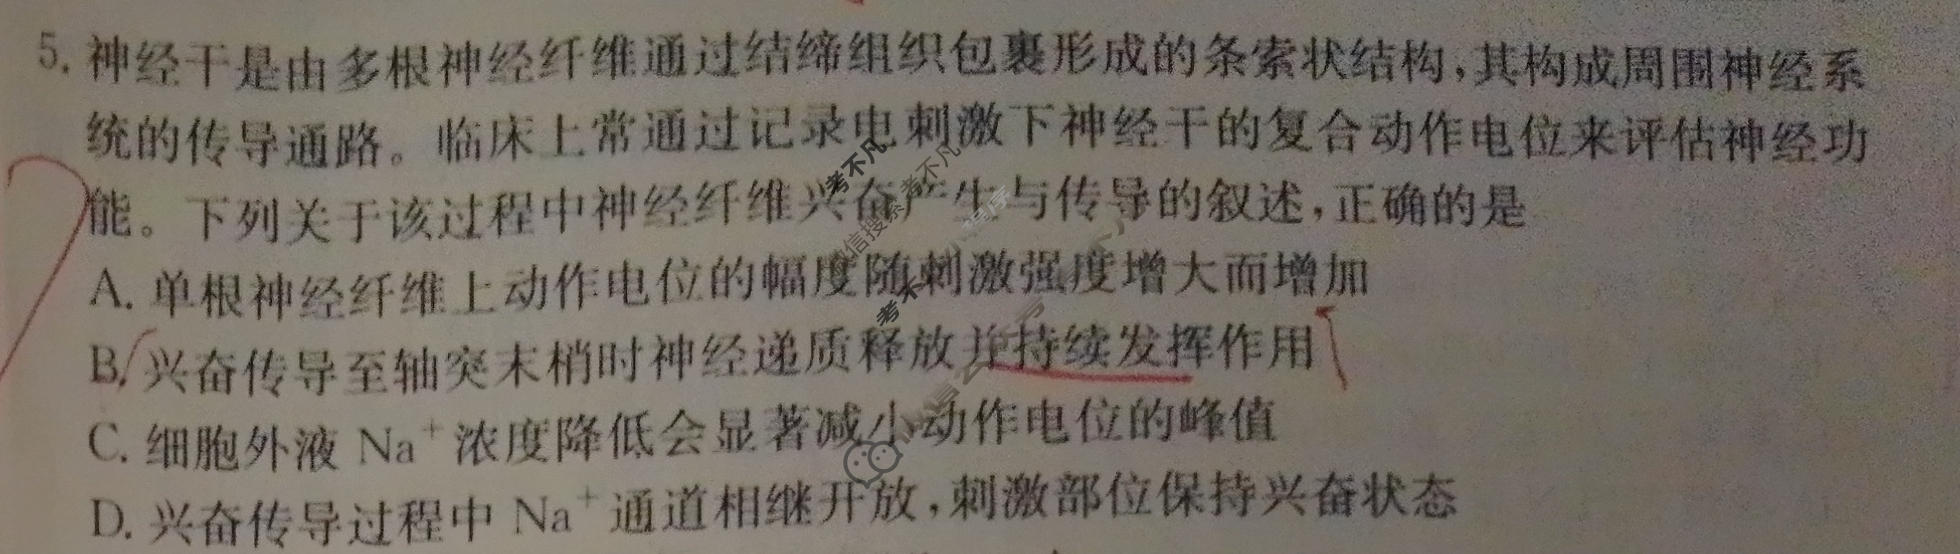 5. 神经干是由多根神经纤维通过结缔组织包裹形成的条索状结构,其构成周围神经系
统的传导通路。临床上常通过记录电刺激下神经干的复合动作电位来评估神经功
能。下列关于该过程中神经纤维兴奋产生与传导的叙述,正确的是
A. 单根神经纤维上动作电位的幅度随刺激强度增大而增加
B. 兴奋传导至轴突末梢时神经递质释放并持续发挥作用
C. 细胞外液 Na⁺ 浓度降低会显著减小动作电位的峰值
D. 兴奋传导过程中 Na⁺ 通道相继开放,刺激部位保持兴奋状态
考不凡
微信搜索 考不凡